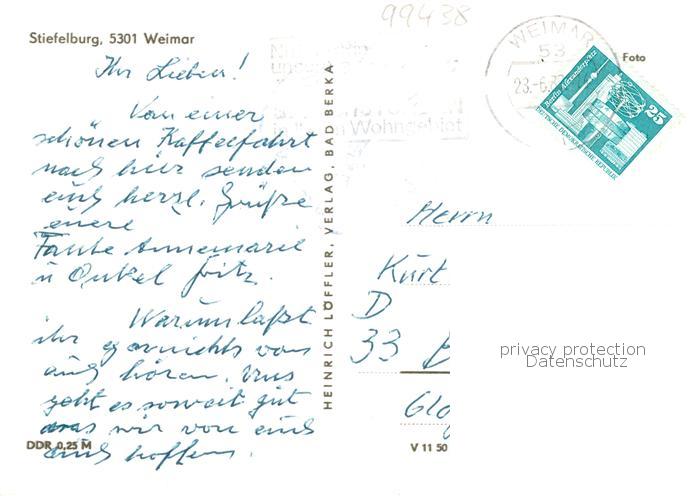 99438
Stiefelburg, 5301 Weimar
Foto
WEIMAR
53
23.-6.
Berlin, Alexanderplatz
25
DEUTSCHE DEMOKRATISCHE REPUBLIK
Wohngebiet
Ihr Lieben!
Von einer
schönen Kaffeefahrt
nach hier senden
euch herzl. Grüße
euere
Tante Annemarie
u Onkel Fritz.
Warum laßt
ihr garnichts von
euch hören. Uns
geht es soweit gut
was wir von euch
auch hoffen.
DDR 0,25 M
HEINRICH LÖFFLER, VERLAG, BAD BERKA
Herrn
Kurt
D
33
Glo
V 11 50
privacy protection
Datenschutz